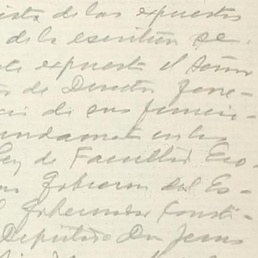 ista de las expuestos
de la escritura se-
te expuesto el Señor
o de Director Gene-
cio de sus funcio-
undamento en las
Ley de Facultad Eco-
Gobierno del Es-
l Gobernador Consti-
Diputado Don Jesus